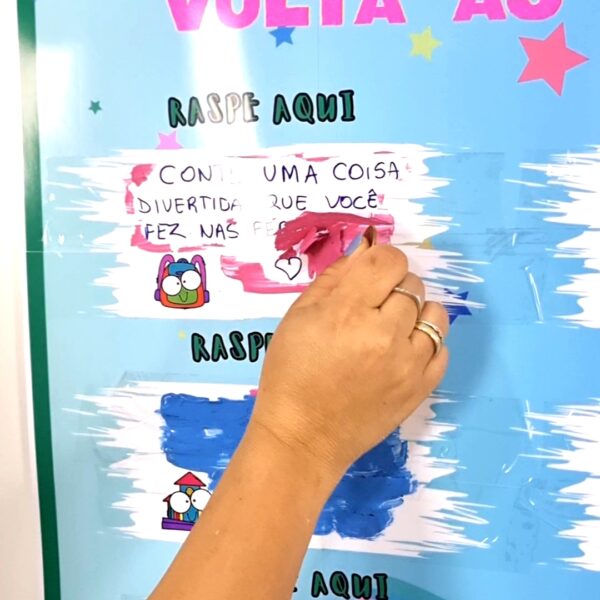 VOLTA AO
RASPE AQUI
UMA COISA
DIVERTIDA QUE VOCÊ
FEZ NAS
RASPE
AQUI